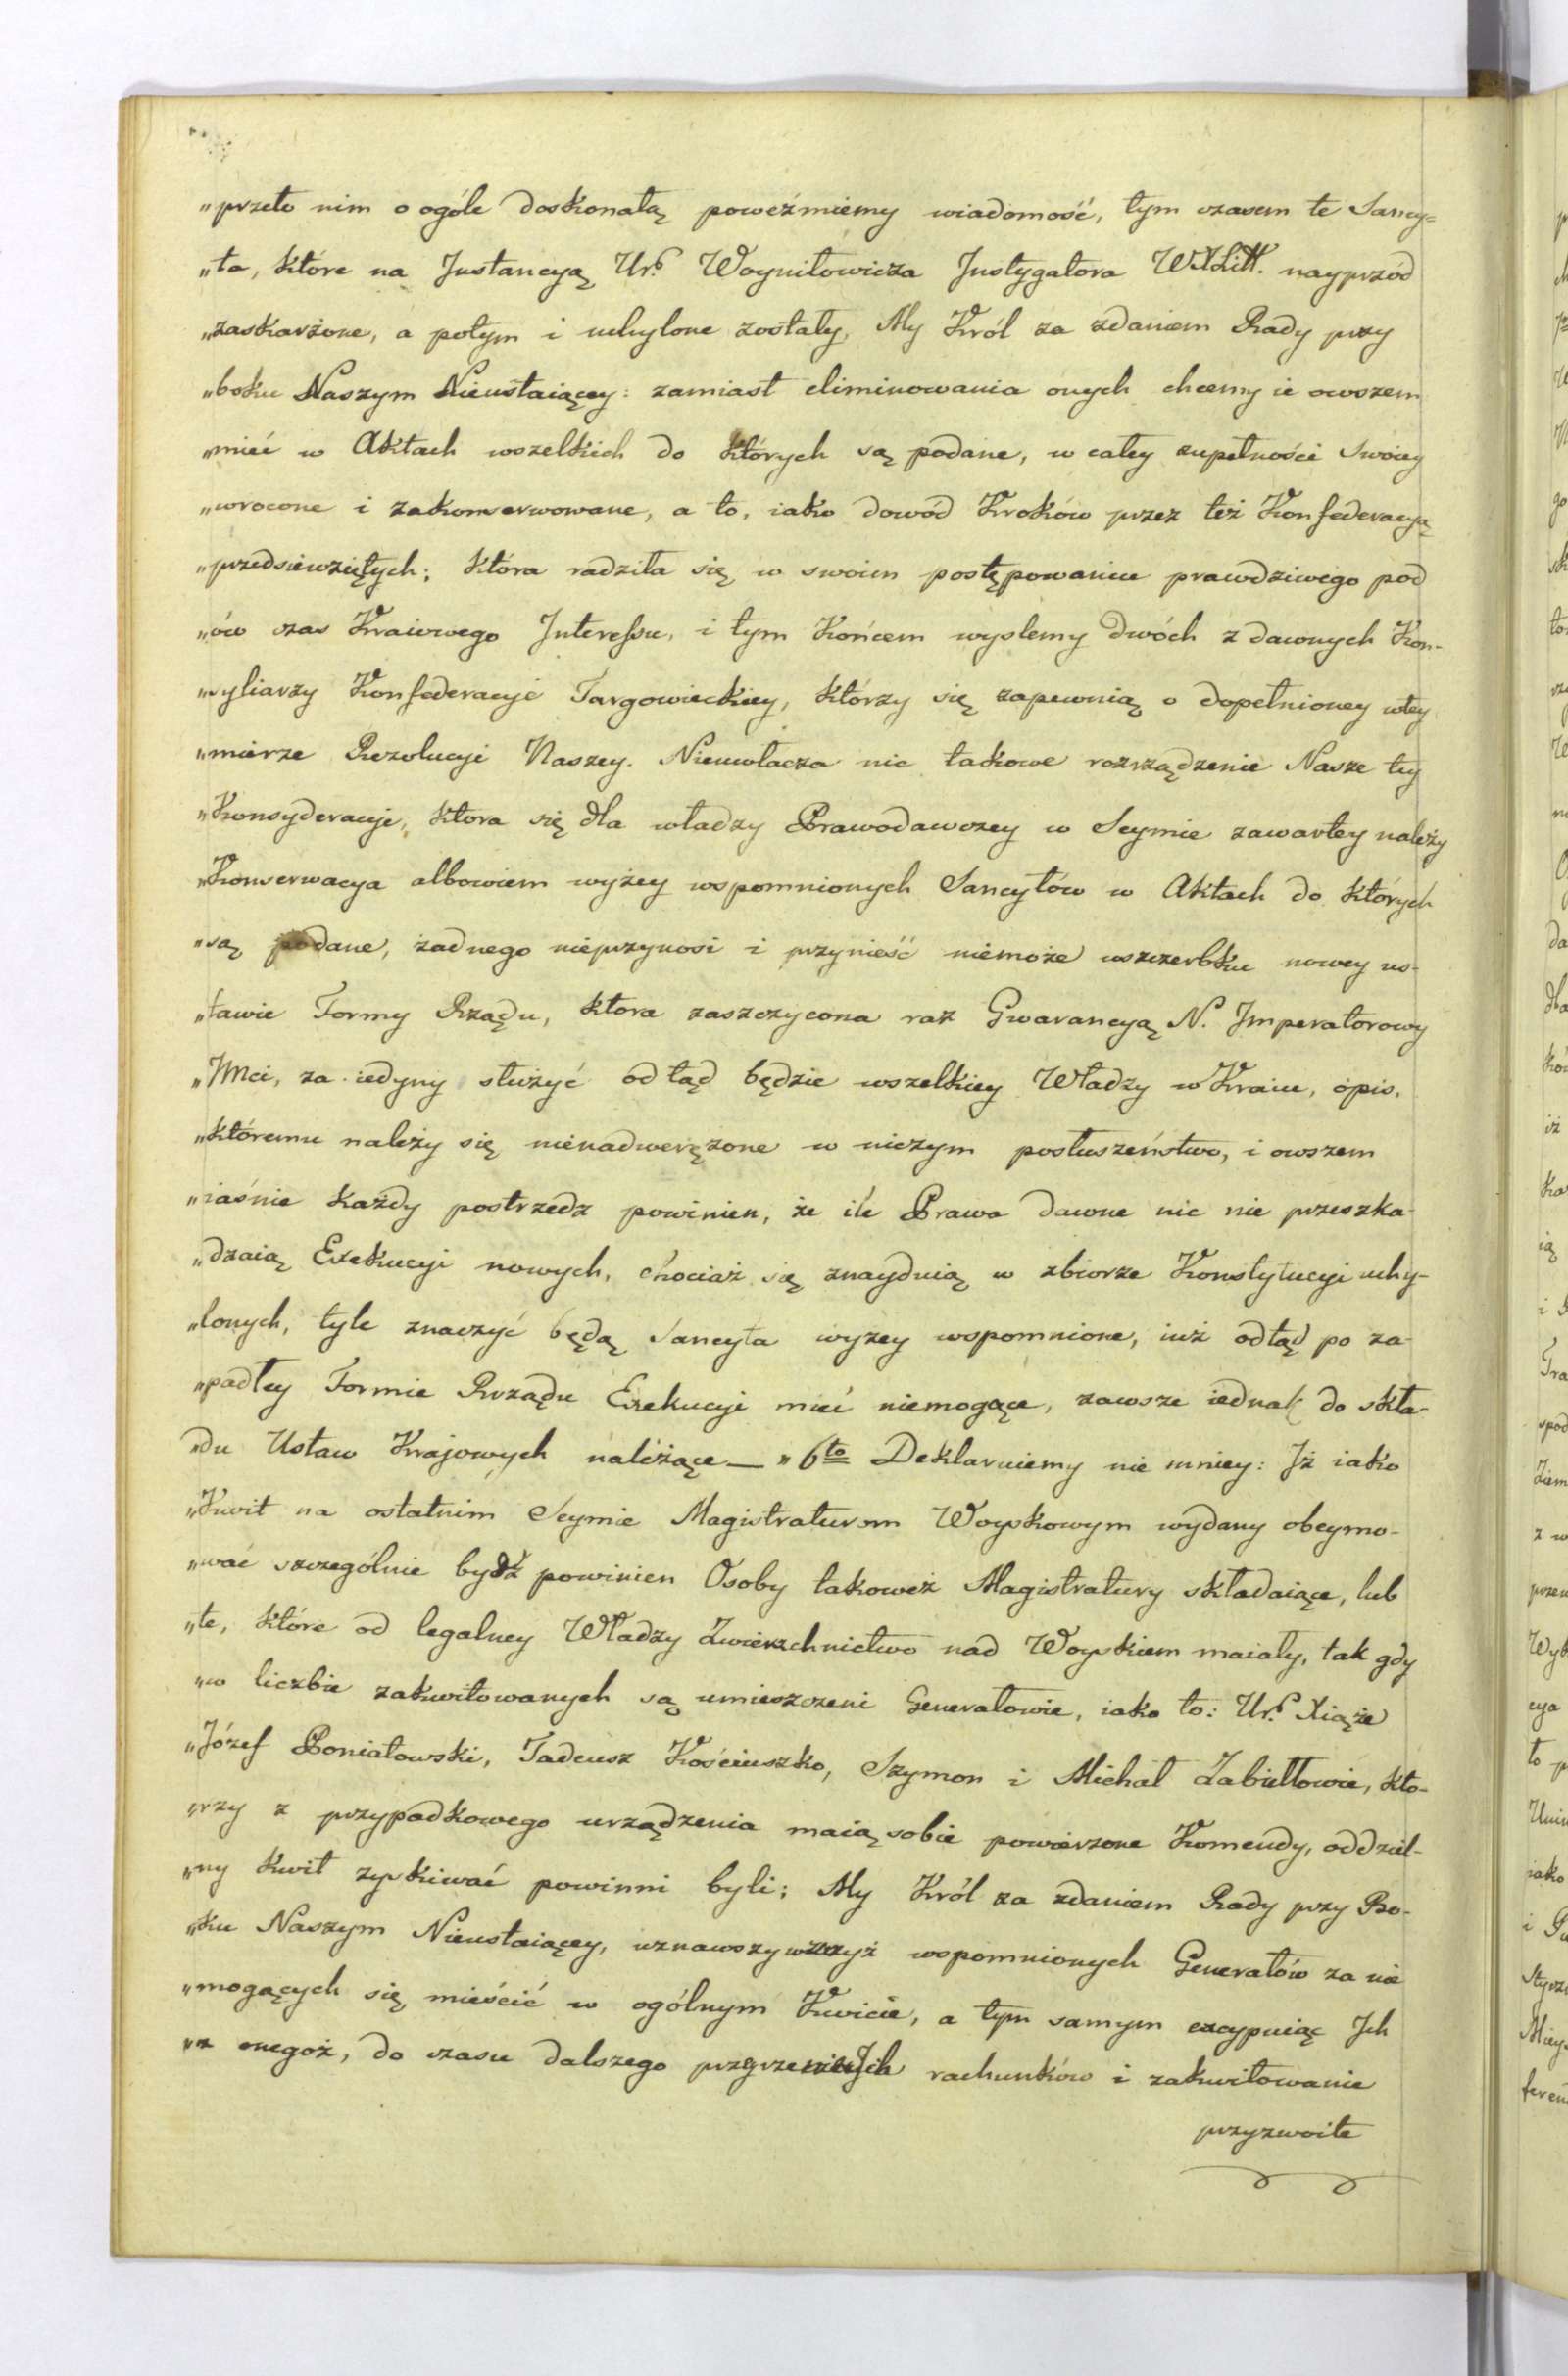 "przeto nim o ogóle doskonałą poweźmiemy wiadomość, tym czasem te Sancy=
"ta, które na Jnstancyą Ur. Woyniłowicza Jnstygatora WXLitt. nayprzód
"zaskarżone, a potym i uchylone zostały, My Król za zdaniem Rady przy
"boku Naszym Nieustaiącey: zamiast eliminowania onych chcemy ie owszem
"mieć w Aktach wszelkich do których są podane, w całey zupełności swoiey
"wrocone i zakonserwowane, a to, iako dowód Kroków przez też Konfederacyą
"przedsiewziętych; która radziła się w swoim postępowaniu prawdziwego pod
"ów czas Kraiowego Jnteressu, i tym Końcem wyslemy dwóch z dawnych Kon-
"syliarzy Konfederacyi Targowieckiey, którzy się zapewnią o dopełnioney wtey
"mierze Rezolucyi Naszey. Nieuwłacza nic takowe rozrządzenie Nasze tey
"Konsyderacyi, ktora się dla władzy Prawodawczey w Seymie zawartey należy
"Konserwacya albowiem wyżey wspomnionych Sancytów w Aktach do których
"są podane, żadnego nieprzynosi i przynieść niemoże uszczerbku nowey us-
"tawie Formy Rządu, ktora zaszczycona raz Gwarancyą N. Jmperatorowy
"JMci, za iedyny służyć odtąd będzie wszelkiey Władzy w Kraiu, opis,
"któremu należy się nienadwerężone w niczym posłuszeństwo, i owszem
"iaśnie każdy postrzedz powinien, że ile Prawa dawne nic nie przeszka-
"dzaią Exekucyi nowych, chociaż się znayduią w zbiorze Konstytucyi uchy-
"lonych, tyle znaczyć będą Sancyta wyzey wspomnione, iuż odtąd po za-
"padłey Formie Rządu Exekucyi mieć niemogące, zawsze iednak do skła-
"du Ustaw Krajowych należące — "6to Deklaruiemy nie mniey: Jż iako
"Kwit na ostatnim Seymie Magistraturom Woyskowym wydany obeymo-
"wać szczególnie bydź powinien Osoby takoweż Magistratury składaiące, lub
"te, które od legalney Władzy Zwierzchnictwo nad Woyskiem maiały, tak gdy
"w liczbie zakwitowanych są umieszczeni Generałowie, iako to: Ur. Xiąże
"Józef Poniatowski, Tadeusz Kościuszko, Szymon i Michał Zabiełłowie, kto-
"rzy z przypadkowego urządzenia maią sobie powierzone Komendy, oddziel-
"ny Kwit zyskiwać powinni byli; My Król za zdaniem Rady przy Bo-
"ku Naszym Nieustaiącey, uznawszy wzyż wspomnionych Generałów za nie
"mogących się mieścić w ogólnym Kwicie, a tym samym excypuiąc Jch
"z onegoż, do czasu dalszego Jch rachunków i zakwitowanie
przyzwoite